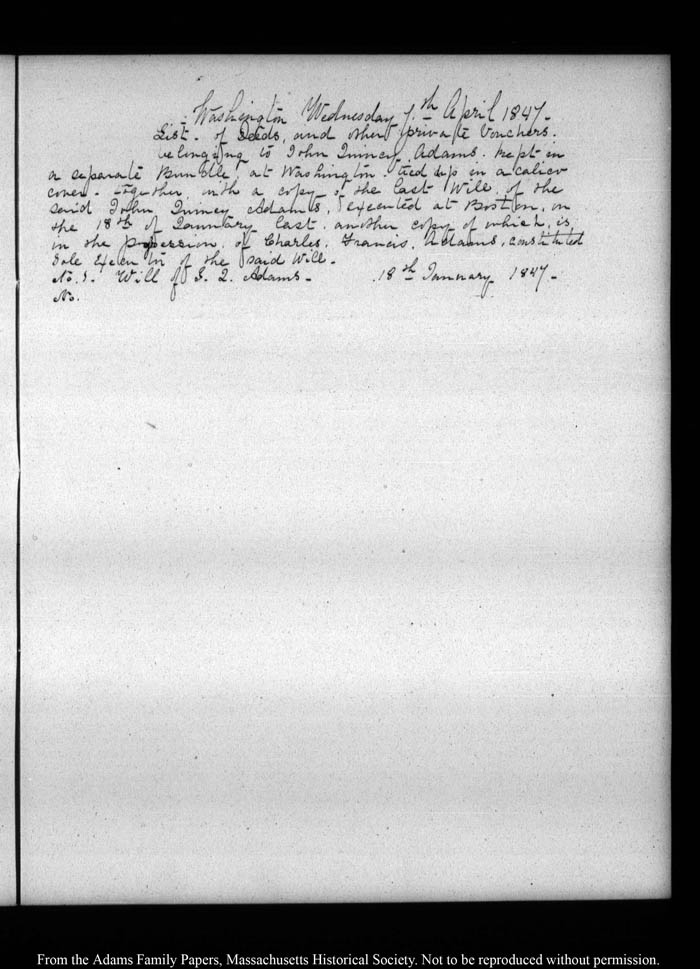 Washington Wednesday 7.th April 1847.
List. of Deeds, and other private Vouchers.
belonging to John Quincy Adams. kept in
a separate Bundle, at Washington tied up in a calico
cover. together with a copy of the last Will, of the
said John Quincy Adams, executed at Boston, on
the 18th of January last, another copy of which, is
in the possession, of Charles, Francis, Adams, constituted
sole Executor of the said Will.
No. 1. Will of J. Q. Adams. 18th January 1847.
No.
From the Adams Family Papers, Massachusetts Historical Society. Not to be reproduced without permission.